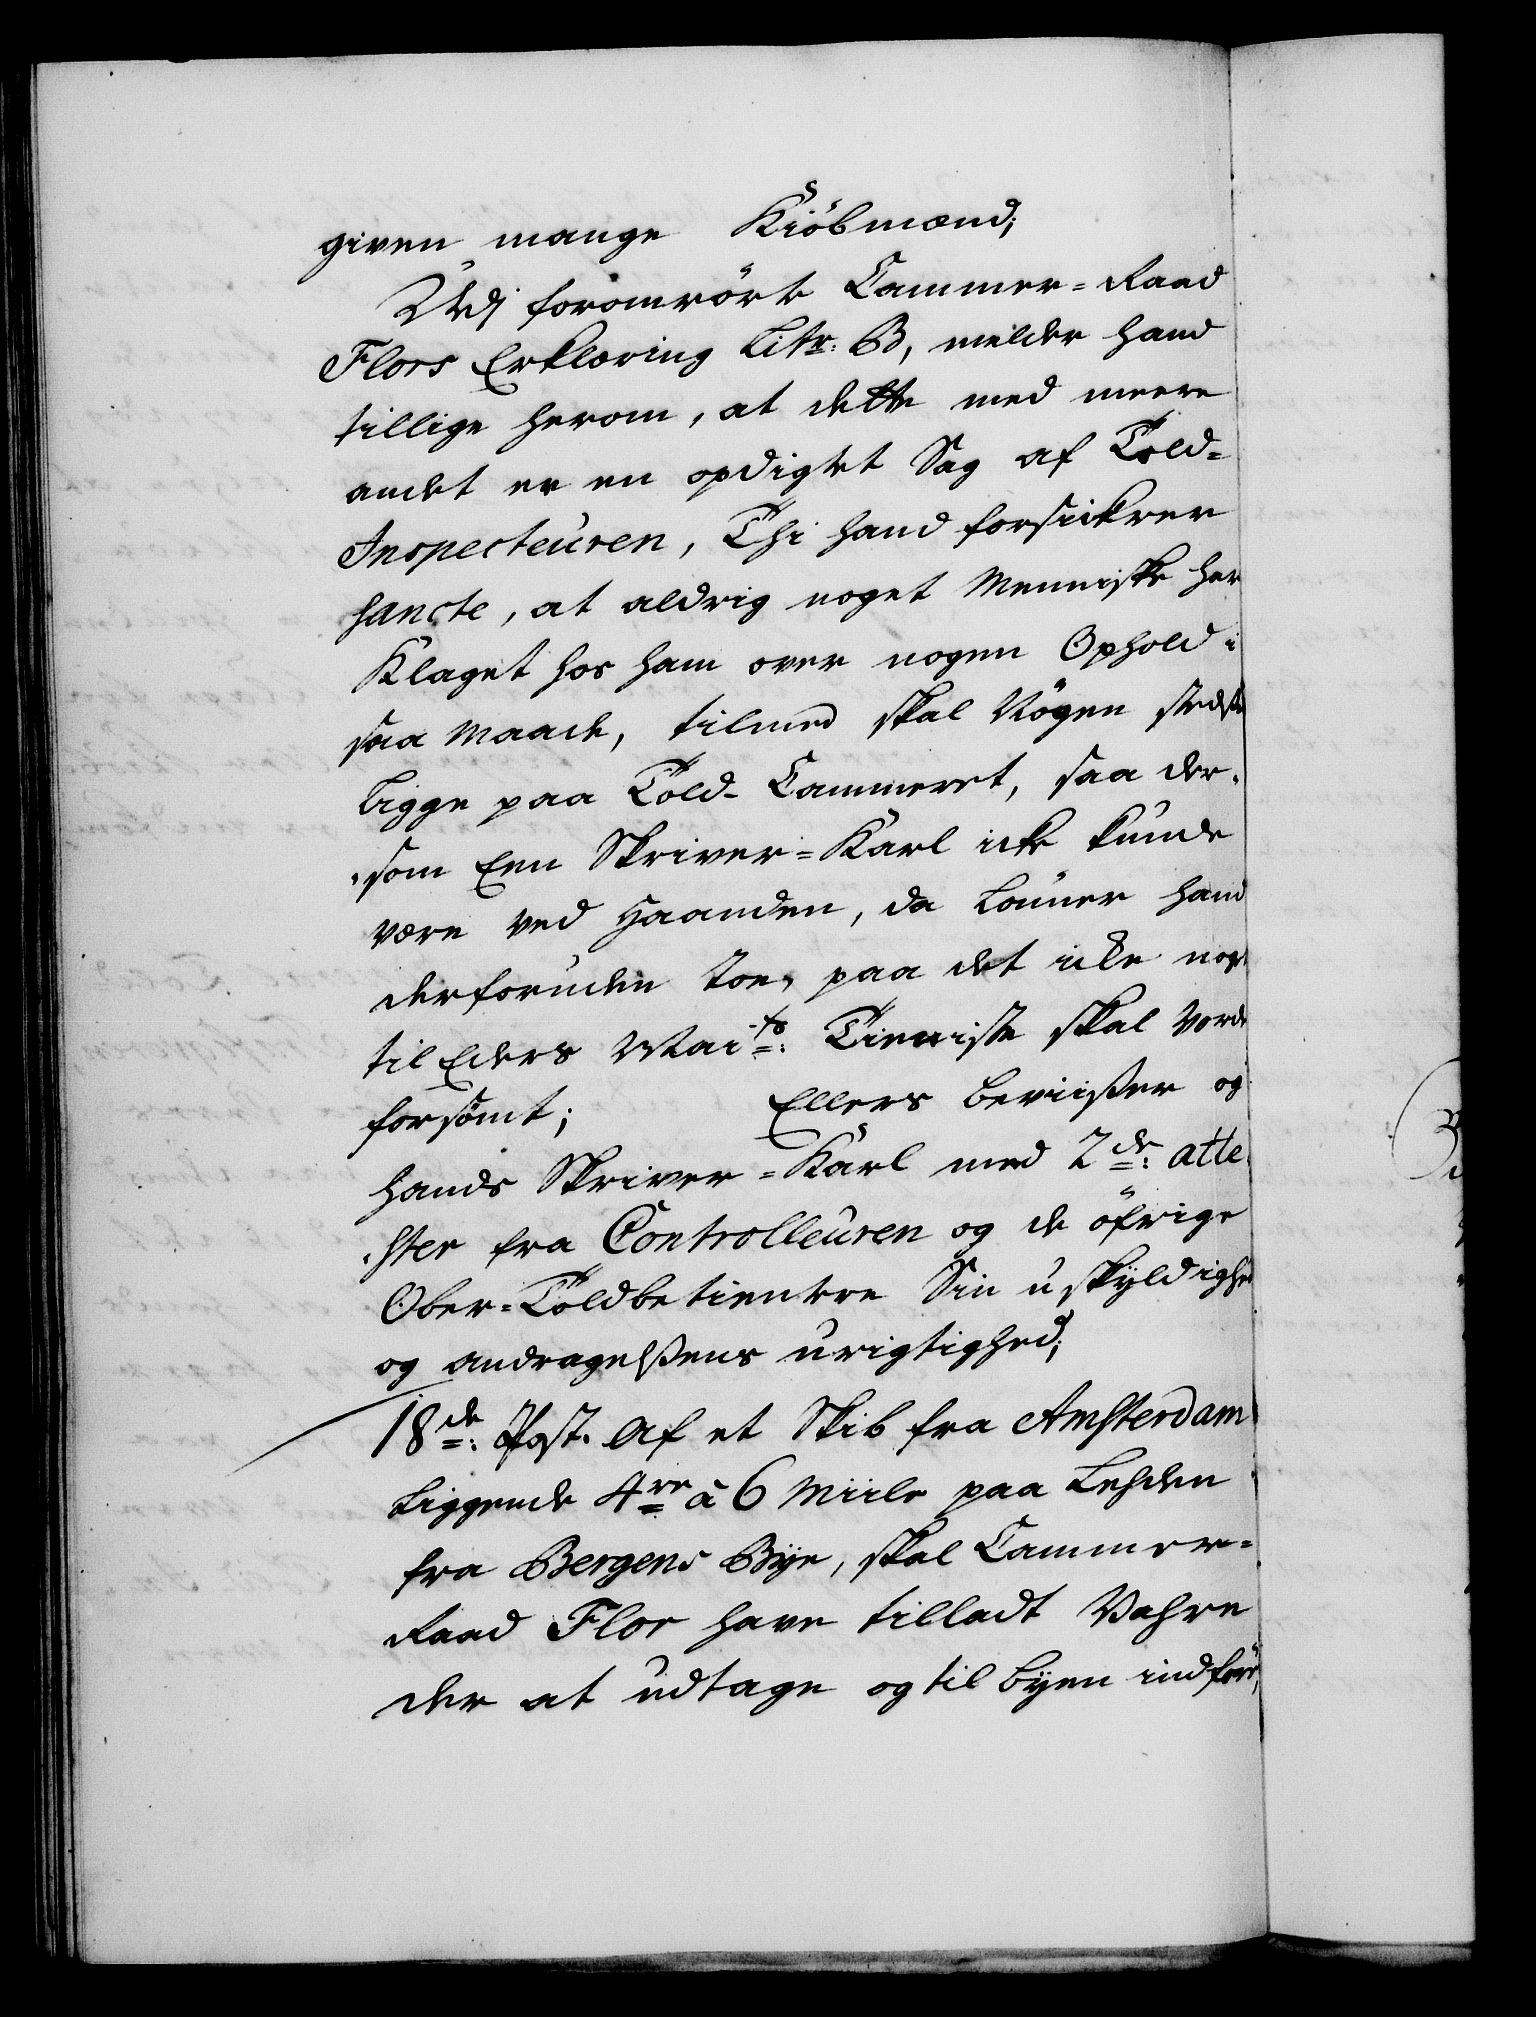 given mange Kiöbmænd;
Udj foromrörte Cammer=Raad
Flors Erklæring Litr: B, melder hand
tillige herom, at dette med meere
andet er en opdigtet Sag af Told=
Inspecteuren, Thi hand forsickrer
sancte, at aldrig noget Menniske har
Klaget hos ham over nogen Ophold i
saa Maade, tilmed skal Nögen stedse
ligge paa Told-Cammeret, saa der-
som Een Skriver=Karl icke kunde
være ved Haanden, da Lönner hand
derforuden toe, paa det icke noget
til Eders Maits: Tieniste skal vorde
forsömt; Ellers beviiser og
hands Skriver=Karl med 2de: atte
ster fra Controlleuren og de öfrige
Ober=Toldbetientere Sin uskyldighed
og andragelsens urigtighed;
18de: Post. Af et Skib fra Amsterdam
liggende 4re à 6 Miile paa Lehden
fra Bergens Bye, skal Cammer=
Raad Flor have tilladt Vahre
der at udtage og til byen indföre,